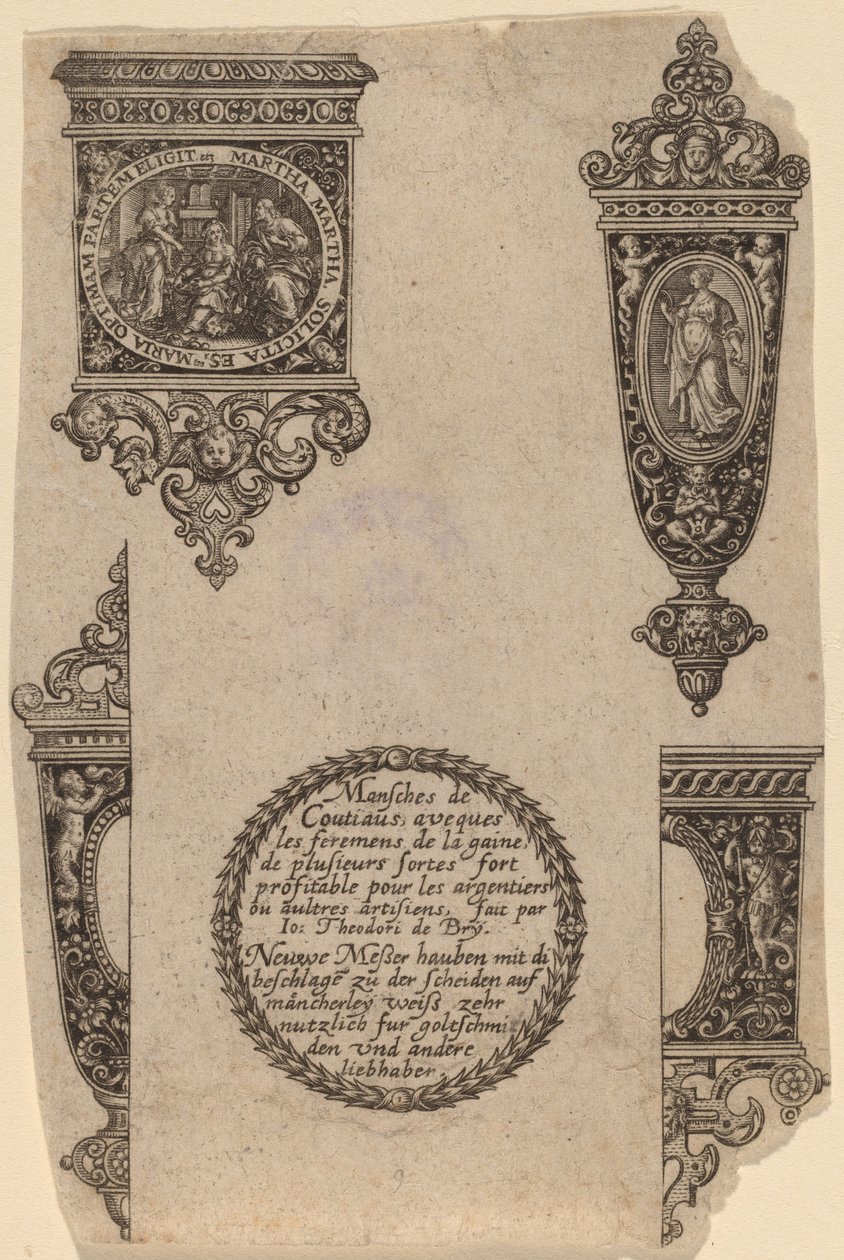 MARTHA MARTHA SOLICITA ES, MARIA OPTIMAM PARTEM ELIGIT. etz
Manſches de
Coutiaus, aveques
les feremens de la gaine,
de pluſieurs ſortes fort
profitable pour les argentiers
ou aultres artiſiens, fait par
Io: Theodori de Bry.
Neuwe Meßer hauben mit di
beſchlagē zu der ſcheiden auf
mancherley weiß zehr
nutzlich fur goltſchmi
den vnd andere
liebhaber.
9